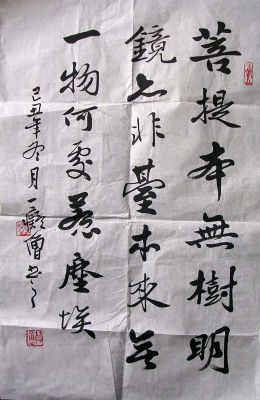 菩提本無樹明
鏡亦非臺本來无
一物何處惹塵埃
己丑年冬月一僧书